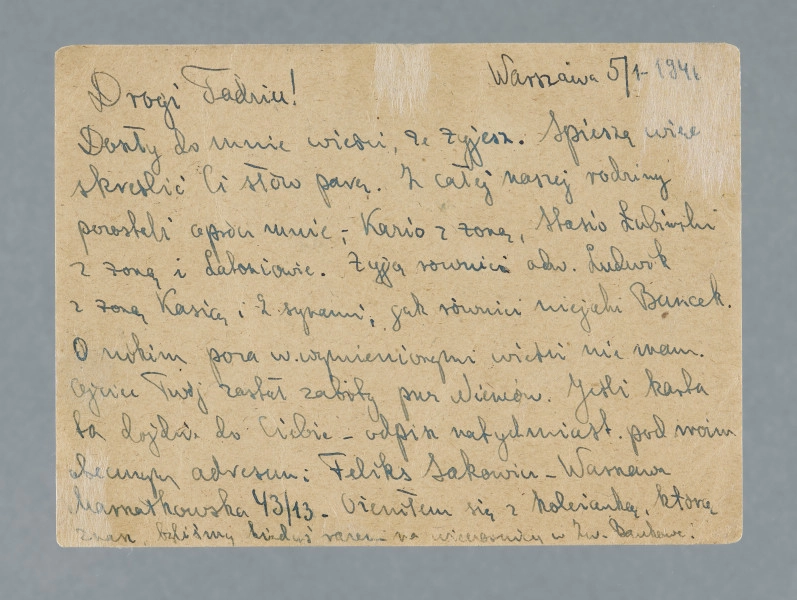 Warszawa 5/1-194
Drogi Tadziu!
Doszły do mnie wieści, że żyjesz. Spieszę więc
skreślić Ci słów parę. Z całej naszej rodziny
pozostali oprócz mnie, - Kazio z żoną, Stasio Żubiński
z żoną i Latoniowie. Żyją również adw. Ludwik
z żoną Kasią i 2 synami, jak również niejaki Buncek.
O nikim poza w.wymienionymi wieści nie mam.
Ojciec Twój został zabity przez Niemców. Jeśli karta
ta dojdzie do Ciebie - odpisz natychmiast pod moim
obecnym adresem: Feliks Sakowicz - Warszawa
Marszałkowska 43/13. Ożeniłem się z koleżanką, którą
znasz, byliśmy kiedyś razem na wieczornicy w Zw.